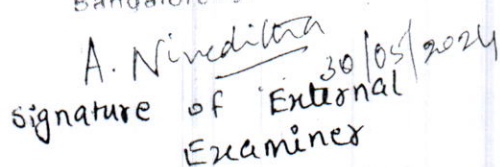 A. Niveditha
30/05/2024
signature of External
Examiner